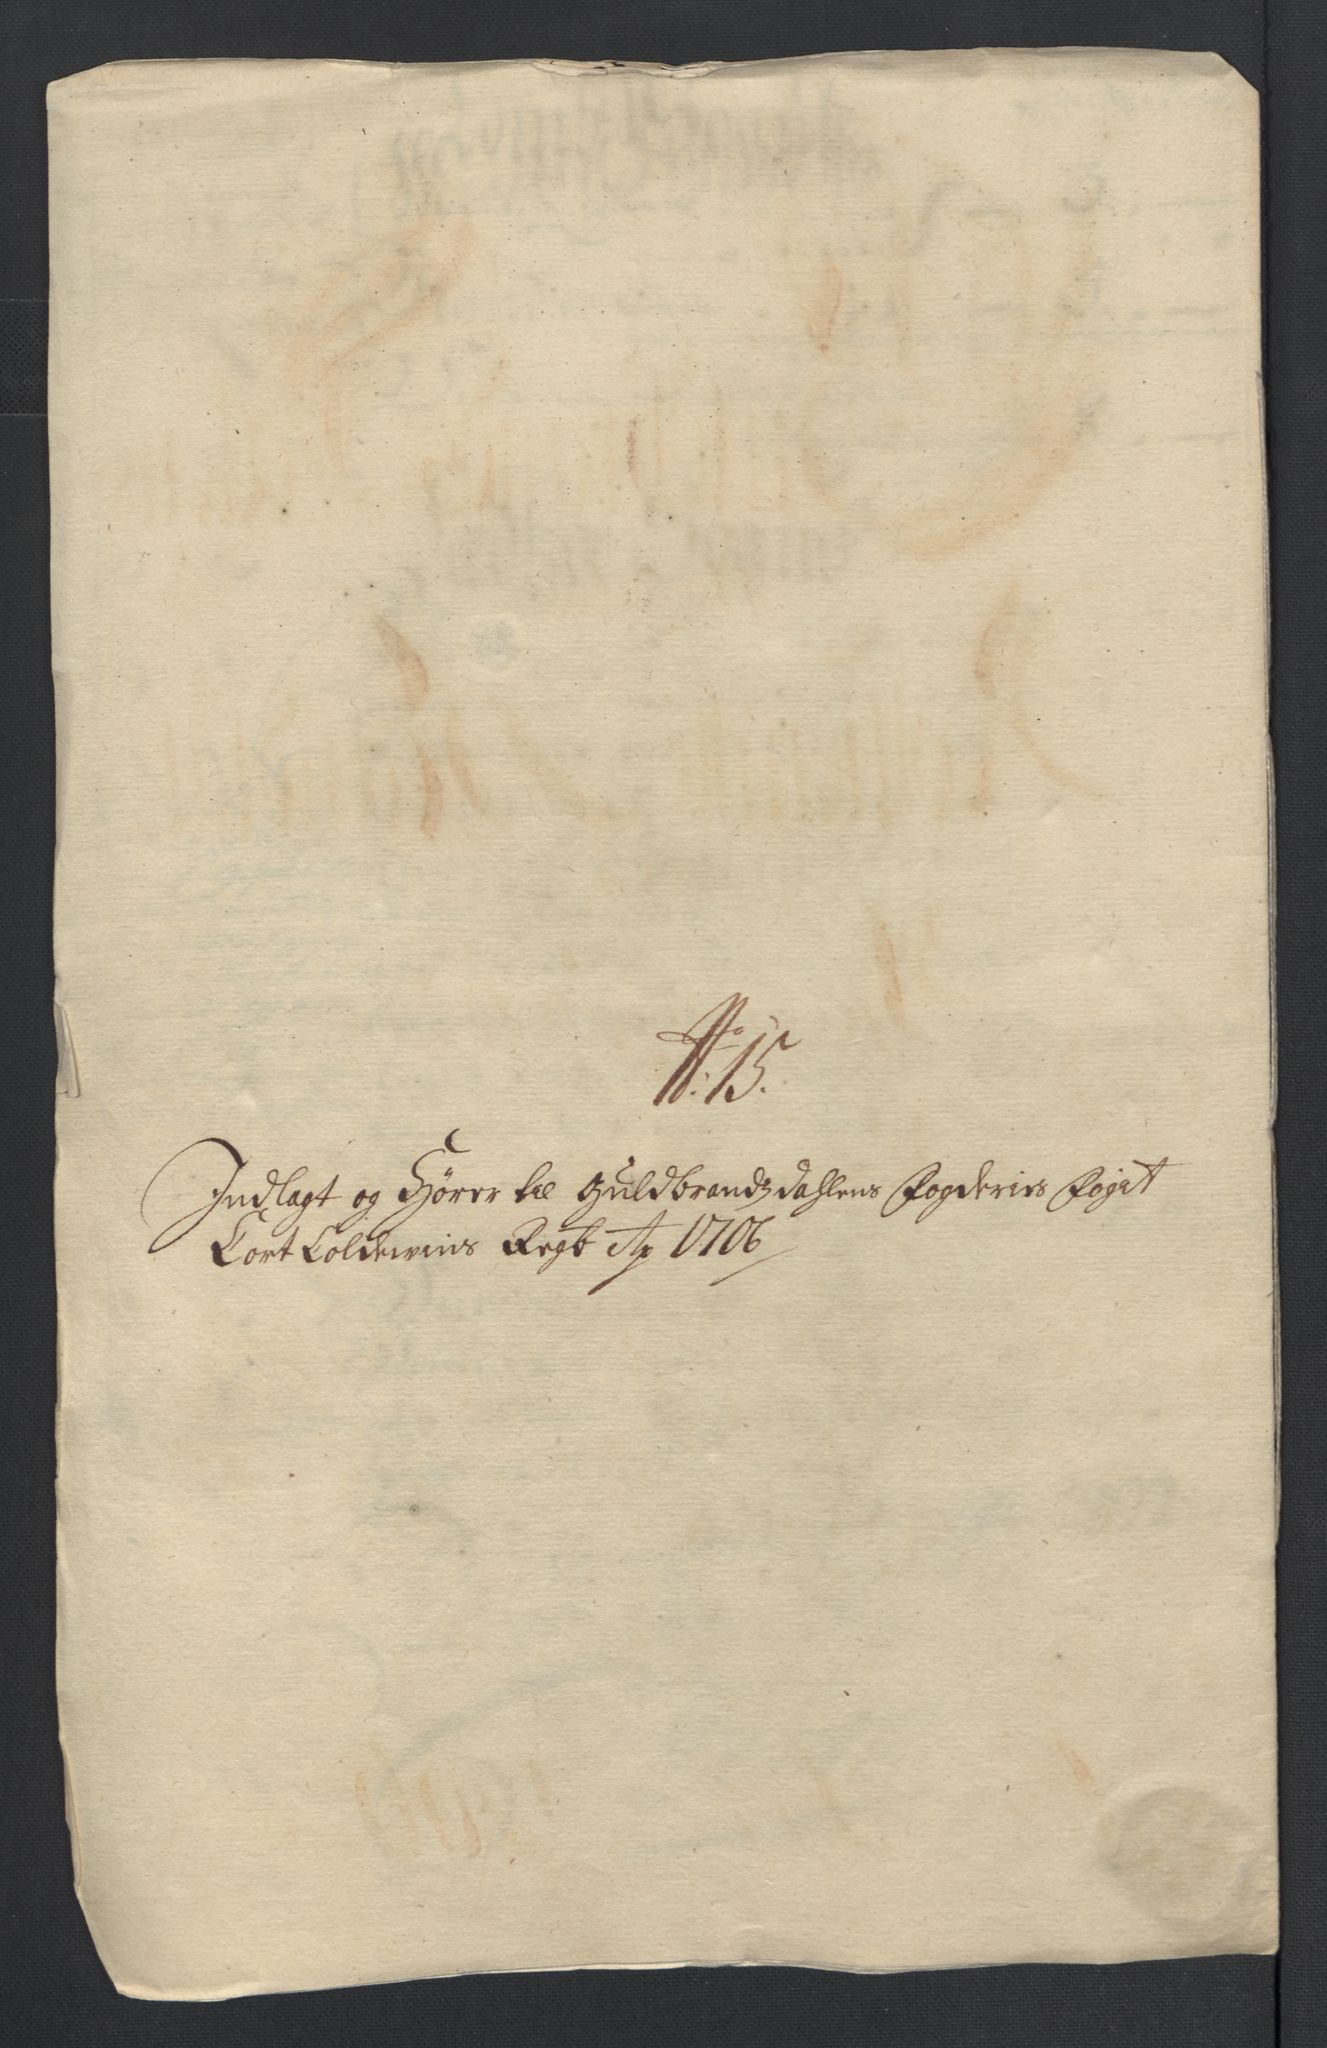 No: 15.
Indlagt og Hører til Guldbrandzdahlens Fogderies Fogit
Cort Coldevins Regb Ao 1706